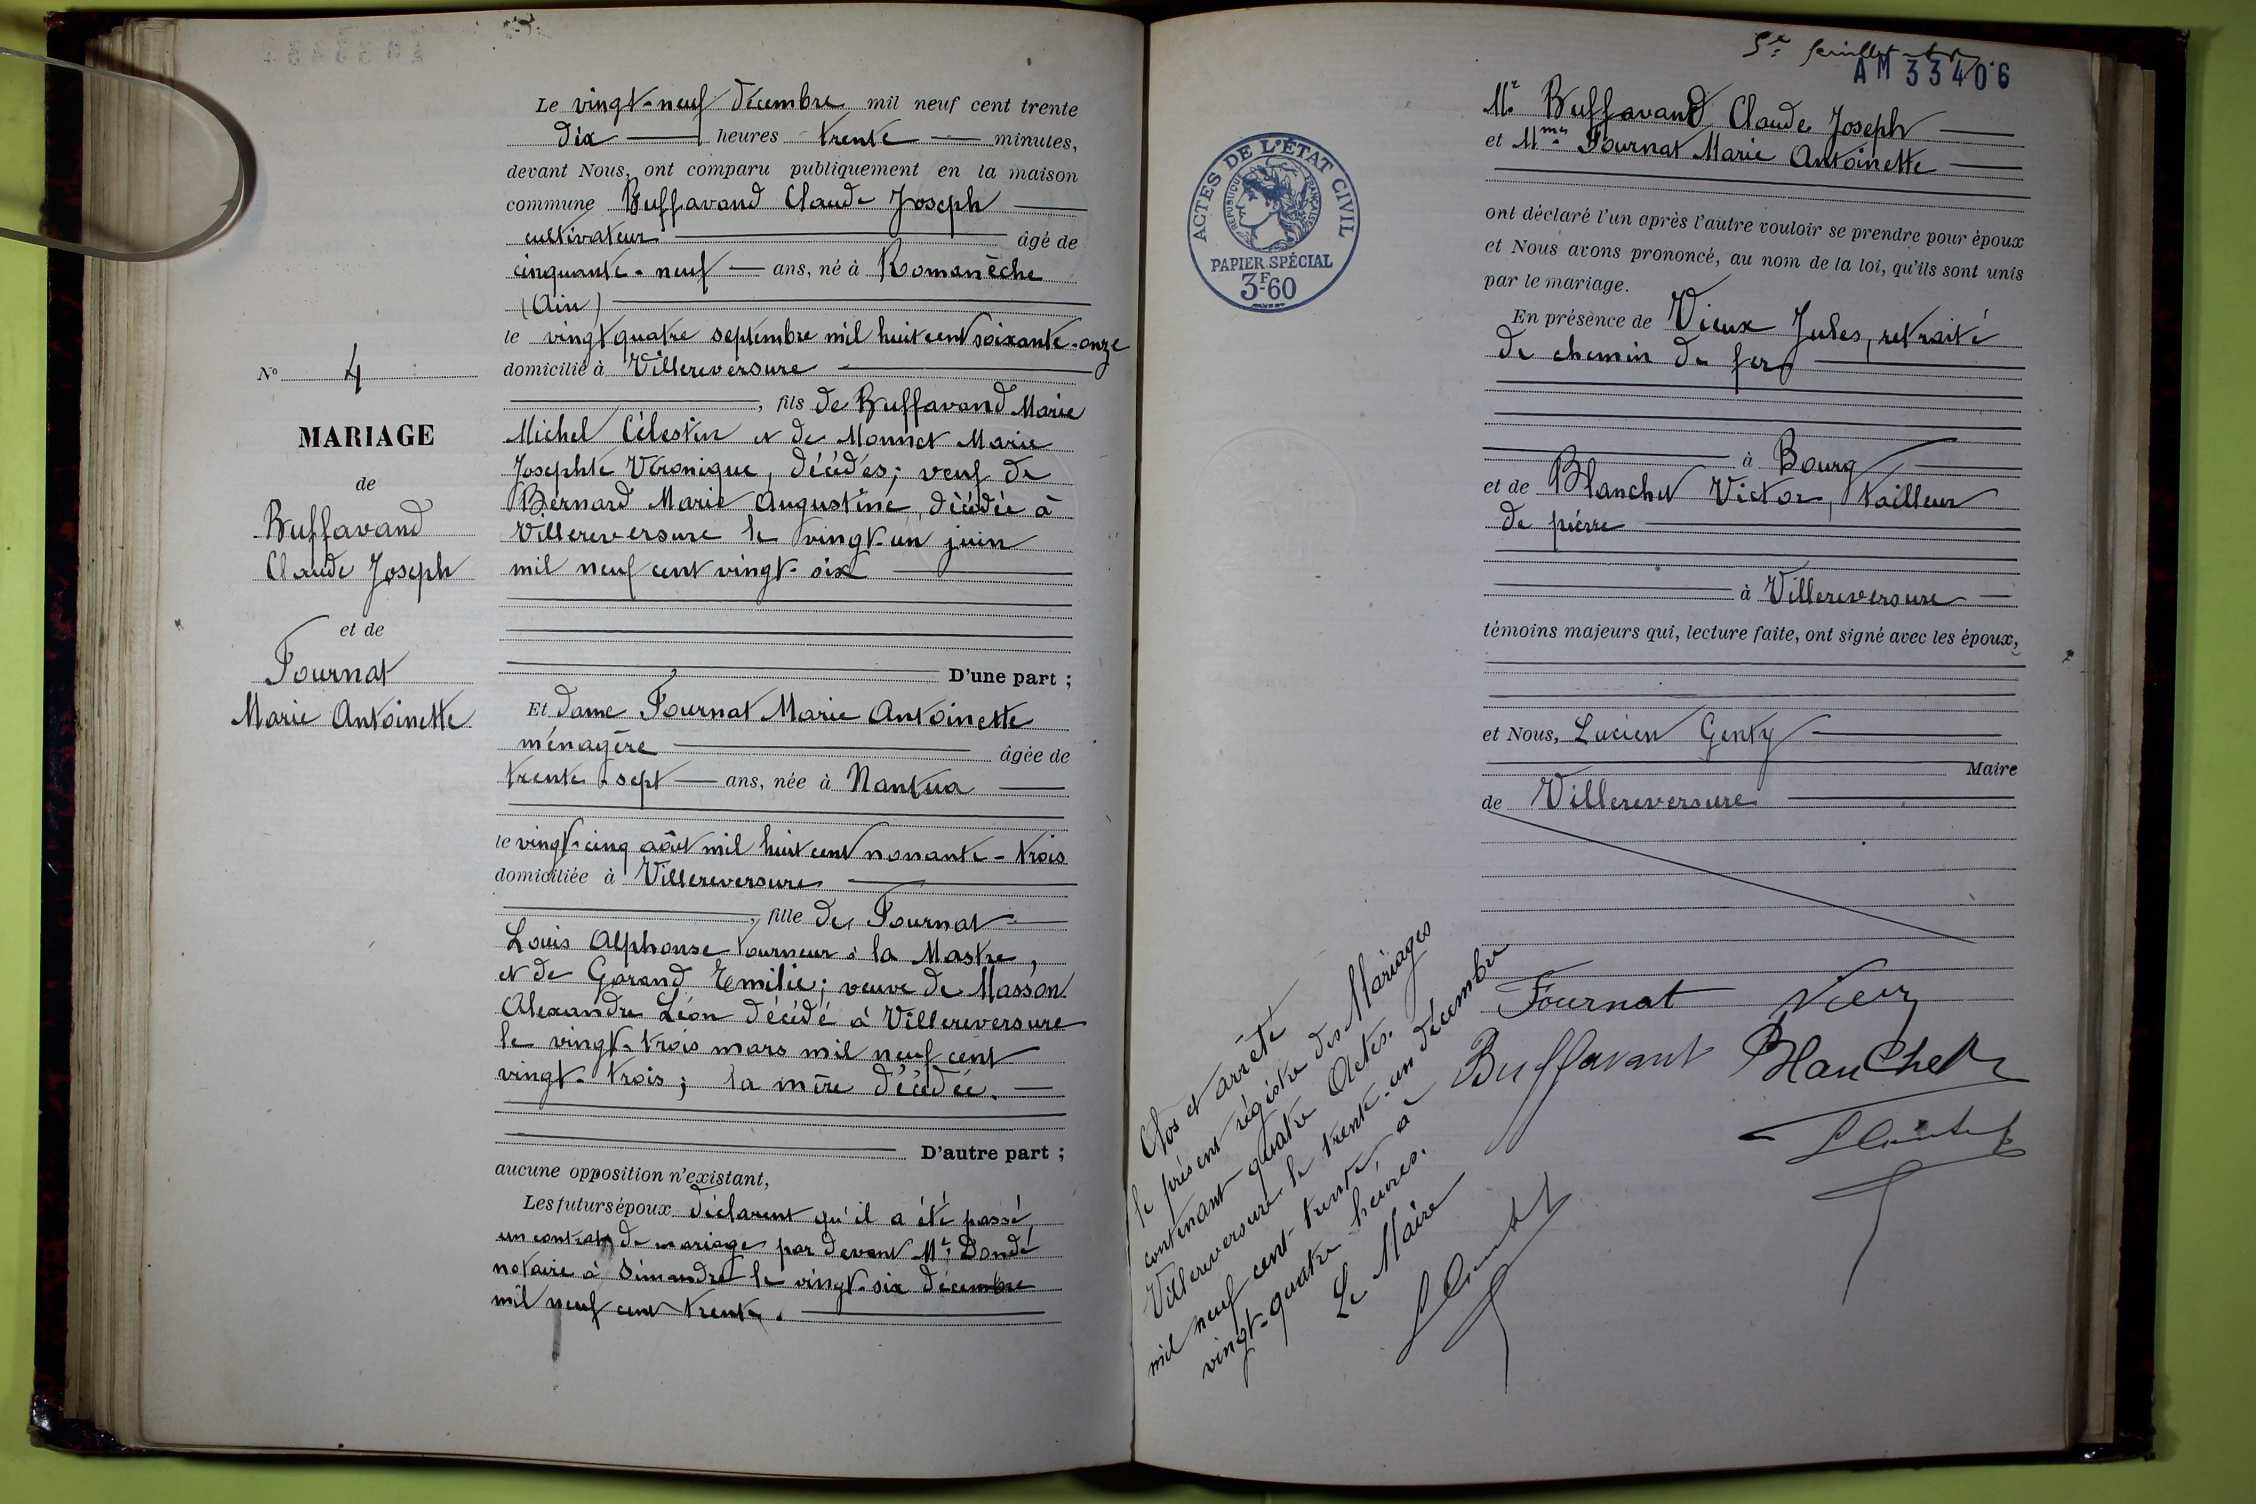 Le vingt-neuf décembre mil neuf cent trente
dix heures trente minutes,
devant Nous, ont comparu publiquement en la maison
commune Buffavand Claude Joseph
cultivateur âgé de
cinquante-neuf ans, né à Romanèche
(Ain)
le vingt quatre septembre mil huit cent soixante-onze
domicilié à Villereversure
, fils de Buffavand Marie
Michel Célestin et de Monnet Marie
Josephte Véronique, décédés; veuf de
Bernard Marie Augustine, décédée à
Villereversure le vingt-un juin
mil neuf cent vingt-six
D'une part ;
Et dame Fournat Marie Antoinette
ménagère âgée de
trente-sept ans, née à Nantua
le vingt-cinq août mil huit cent nonante-trois
domiciliée à Villereversure
, fille de Fournat
Louis Alphonse tourneur à la Mastre,
et de Garand Emilie; veuve de Masson
Alexandre Léon décédé à Villereversure
le vingt-trois mars mil neuf cent
vingt-trois; la mère décédée.
D'autre part ;
aucune opposition n'existant,
Les futurs époux déclarent qu'il a été passé
un contrat de mariage par devant Me Dondé
notaire à Simandre le vingt-six décembre
mil neuf cent trente.
No 4
MARIAGE
de
Buffavand
Claude Joseph
et de
Fournat
Marie Antoinette
5e feuillet
AM 33406
ACTES DE L'ÉTAT CIVIL
RÉPUBLIQUE FRANÇAISE
PAPIER SPÉCIAL
3F60
Mr Buffavand Claude Joseph
et Mme Fournat Marie Antoinette
ont déclaré l'un après l'autre vouloir se prendre pour époux
et Nous avons prononcé, au nom de la loi, qu'ils sont unis
par le mariage.
En présence de Vieux Jules, retraité
de chemin de fer
à Bourg
et de Blanchet Victor, tailleur
de pierre
à Villereversure
témoins majeurs qui, lecture faite, ont signé avec les époux,
et Nous, Lucien Genty
Maire
de Villereversure
Fournat Vieux
Buffavant Blanchet
Clos et arrêté
le présent régistre des Mariages
contenant quatre Actes.
Villereversure le trente-un décembre
mil neuf cent trente, à
vingt-quatre heures.
Le Maire